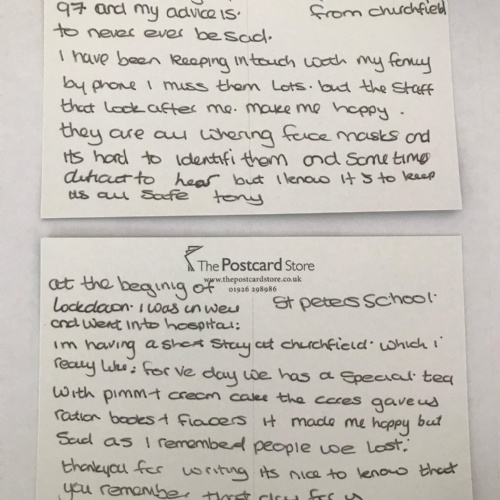 97 and my advice is.
from churchfield
to never ever be sad.
I have been keeping in touch with my femly
by phone I miss them lots. but the staff
that look after me. make me happy.
they are all whering face masks and
its hard to identifi them and sometime
dificact to hear but I know it's to keep
us all safe tony
The Postcard Store
www.thepostcardstore.co.uk
01926 298986
at the beginig of
St peters School.
lockdown. I was unwell
and went into hospital:
im having a short stay at churchfield. which I
really like: for ve day we has a special tea
with pimm + cream cake the cares gave us
ration books + flacers it made me happy but
sad as I remembed people we lost:
thankyou for writing its nice to know that
you remember that day for us